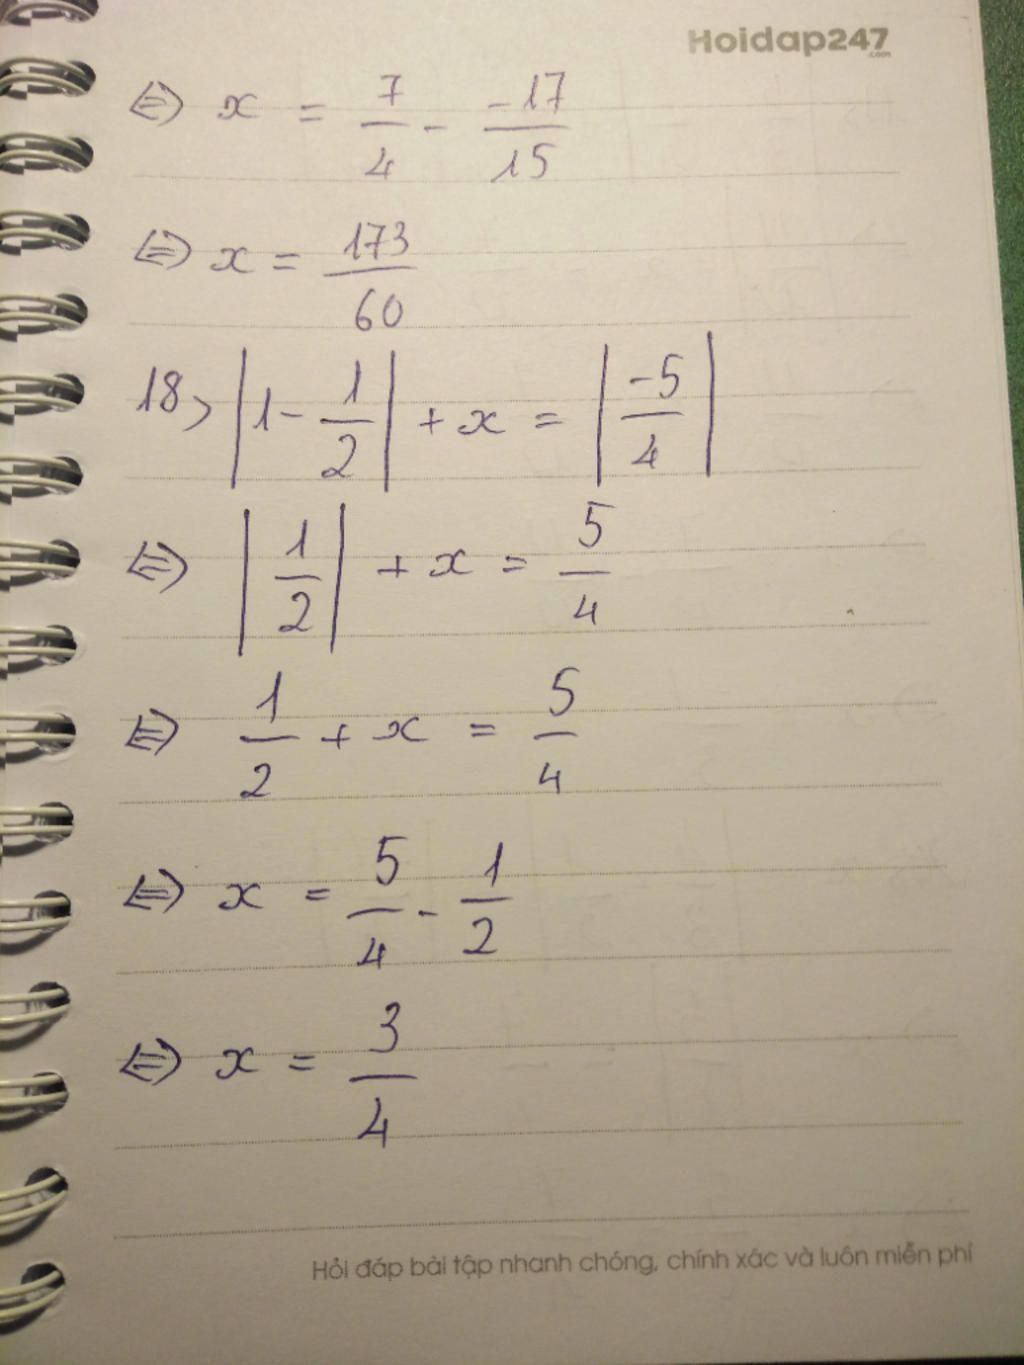 Hoidap247
.com
⇔ x = 7/4 - -17/15
⇔ x = 173/60
18> |1 - 1/2| + x = |-5/4|
⇔ |1/2| + x = 5/4
⇔ 1/2 + x = 5/4
⇔ x = 5/4 - 1/2
⇔ x = 3/4
Hỏi đáp bài tập nhanh chóng, chính xác và luôn miễn phí